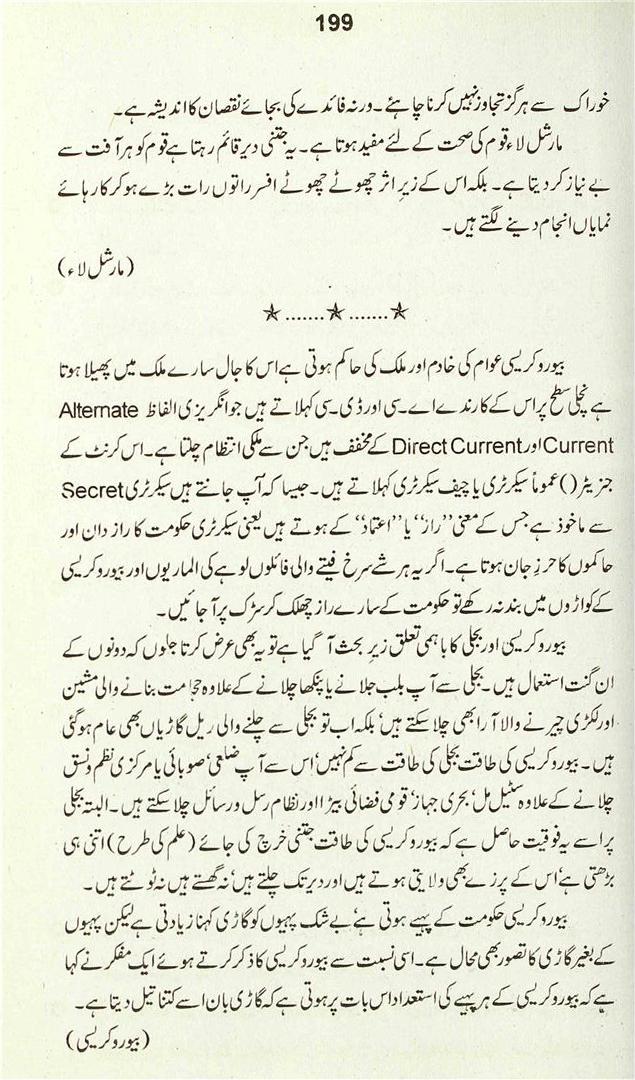 199
خوراک سے ہرگز تجاوز نہیں کرنا چاہئے۔ ورنہ فائدے کی بجائے نقصان کا اندیشہ ہے۔
مارشل لاء قوم کی صحت کے لئے مفید ہوتا ہے۔ یہ جتنی دیر قائم رہتا ہے قوم کو ہر آفت سے
بے نیاز کر دیتا ہے۔ بلکہ اس کے زیرِ اثر چھوٹے چھوٹے افسر راتوں رات بڑے ہو کر کارہائے
نمایاں انجام دینے لگتے ہیں۔
(مارشل لاء)
★.......★.......★
بیوروکریسی عوام کی خادم اور ملک کی حاکم ہوتی ہے اس کا جال سارے ملک میں پھیلا ہوتا
ہے نچلی سطح پر اس کے کارندے اے۔سی اور ڈی۔سی کہلاتے ہیں جو انگریزی الفاظ Alternate
Current اور Direct Current کے مخفف ہیں جن سے ملکی انتظام چلتا ہے۔ اس کرنٹ کے
جنریٹر() عموماً سیکرٹری یا چیف سیکرٹری کہلاتے ہیں۔ جیسا کہ آپ جانتے ہیں سیکرٹری Secret
سے ماخوذ ہے جس کے معنی ’’راز‘‘ یا ’’اعتماد‘‘ کے ہوتے ہیں یعنی سیکرٹری حکومت کا راز دان اور
حاکموں کا حرزِ جان ہوتا ہے۔ اگر یہ ہر شے سرخ فیتے والی فائلوں لوہے کی الماریوں اور بیوروکریسی
کے کواڑوں میں بند نہ رکھے تو حکومت کے سارے راز چھلک کر سڑک پر آ جائیں۔
بیوروکریسی اور بجلی کا باہمی تعلق زیرِ بحث آ گیا ہے تو یہ بھی عرض کرتا چلوں کہ دونوں کے
ان گنت استعمال ہیں۔ بجلی سے آپ بلب جلانے یا پنکھا چلانے کے علاوہ حجامت بنانے والی مشین
اور لکڑی چیرنے والا آرا بھی چلا سکتے ہیں‘ بلکہ اب تو بجلی سے چلنے والی ریل گاڑیاں بھی عام ہو گئی
ہیں۔ بیوروکریسی کی طاقت بجلی کی طاقت سے کم نہیں‘ اس سے آپ ضلعی‘ صوبائی یا مرکزی نظم و نسق
چلانے کے علاوہ سٹیل مل‘ بحری جہاز‘ قومی فضائی بیڑا اور نظام رسل و رسائل چلا سکتے ہیں۔ البتہ بجلی
پر اسے یہ فوقیت حاصل ہے کہ بیوروکریسی کی طاقت جتنی خرچ کی جائے (علم کی طرح) اتنی ہی
بڑھتی ہے‘ اس کے پرزے بھی ولایتی ہوتے ہیں اور دیر تک چلتے ہیں‘ نہ گھستے ہیں نہ ٹوٹتے ہیں۔
بیوروکریسی حکومت کے پہیے ہوتی ہے‘ بے شک پہیوں کو گاڑی کہنا زیادتی ہے لیکن پہیوں
کے بغیر گاڑی کا تصور بھی محال ہے۔ اسی نسبت سے بیوروکریسی کا ذکر کرتے ہوئے ایک مفکر نے کہا
ہے کہ بیوروکریسی کے ہر پہیے کی استعداد اس بات پر ہوتی ہے کہ گاڑی بان اسے کتنا تیل دیتا ہے۔
(بیوروکریسی)